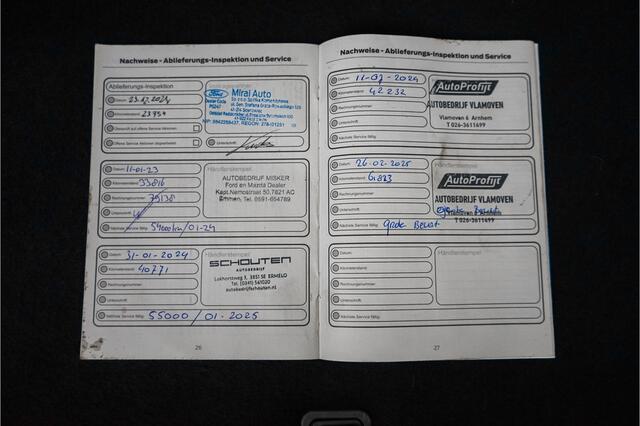 Nachweise - Ablieferungs-Inspektion und Service
Ablieferungs-Inspektion
Datum
Kilometerstand 23954
Unterschrift
Ford
Mirai Auto
Datum 11-01-23
Kilometerstand 33816
Rechnungsnummer 75138
Unterschrift
Nächste Service fällig 54000km/01-24
Händlerstempel
AUTOBEDRIJF MISKER
Ford en Mazda Dealer
Kapt.Nemostraat 50,7821 AC
Emmen, Tel. 0591-654789
Datum 31-01-2024
Kilometerstand 40771
Rechnungsnummer
Unterschrift
Nächste Service fällig 55000/01-2025
Händlerstempel
SCHOUTEN
AUTOBEDRIJF
Lokhorstweg 3, 3851 SE ERMELO
Tel. (0341) 561020
autobedrijfschouten.nl
26
Nachweise - Ablieferungs-Inspektion und Service
Datum
Kilometerstand 42232
Rechnungsnummer
Unterschrift
Nächste Service fällig
AutoProfijt
AUTOBEDRIJF VLAMOVEN
Vlamoven 6 Arnhem
T 026-3611499
Datum 26-02-2025
Kilometerstand
Rechnungsnummer
Unterschrift
Nächste Service fällig grote Beurt
Händlerstempel
AutoProfijt
AUTOBEDRIJF VLAMOVEN
Vlamoven 6 Arnhem
T 026-3611499
Datum
Kilometerstand
Rechnungsnummer
Unterschrift
Nächste Service fällig
Händlerstempel
27